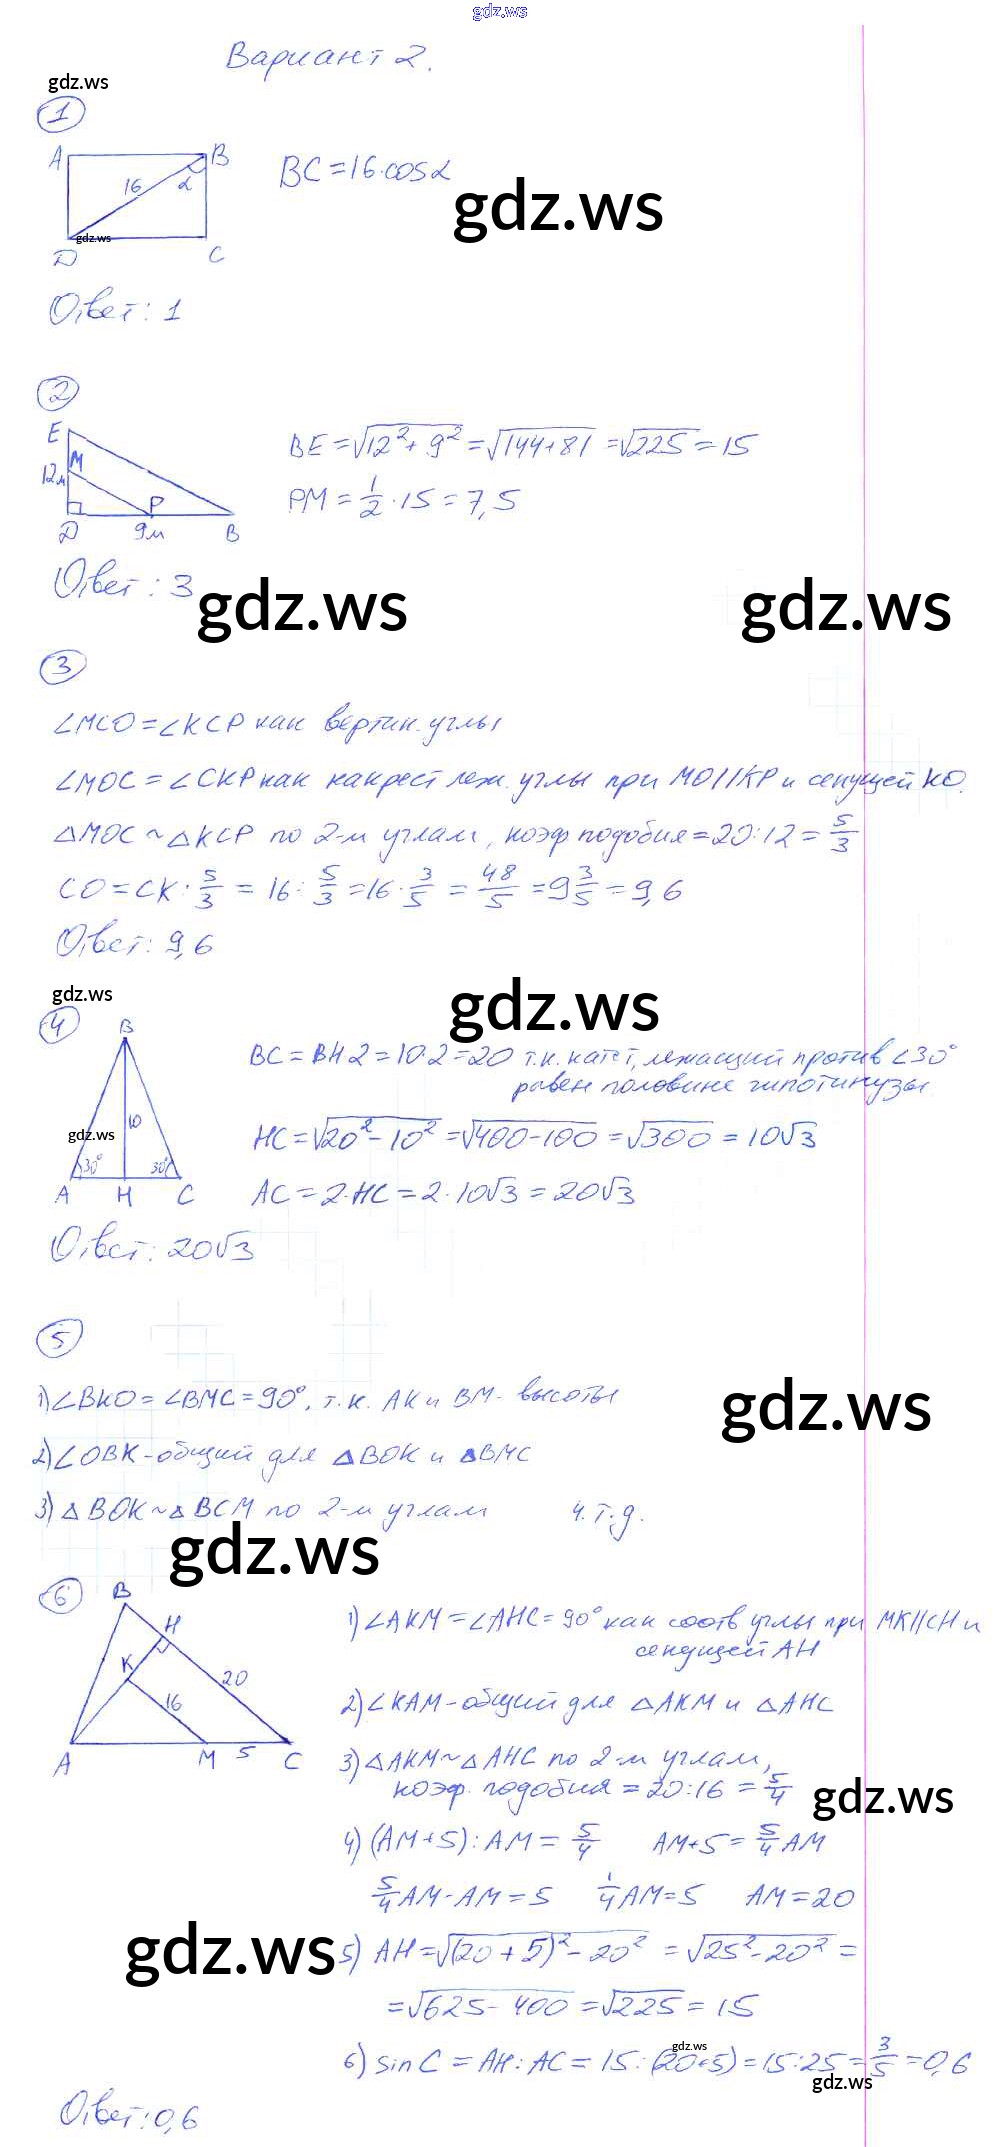 gdz.ws
Вариант 2.
gdz.ws
1
A B
16 α
D C
gdz.ws
BC = 16·cosα
gdz.ws
Ответ: 1
2
E
12м M
D 9м P B
BE = √(12² + 9²) = √(144+81) = √225 = 15
PM = 1/2 · 15 = 7,5
Ответ: 3
gdz.ws gdz.ws
3
∠MCO = ∠KCP как вертик. углы
∠MOC = ∠CKP как накрест леж. углы при MO//KP и секущей KO.
△MOC ~ △KCP по 2-м углам, коэф подобия = 20:12 = 5/3
CO = CK · 5/3 = 16 : 5/3 = 16 · 3/5 = 48/5 = 9 3/5 = 9,6
Ответ: 9,6
gdz.ws gdz.ws
4
B
10
gdz.ws
30° 30°
A H C
BC = BH·2 = 10·2 = 20 т.к. катет, лежащий против ∠30°
равен половине гипотинузы.
HC = √(20² - 10²) = √(400-100) = √300 = 10√3
AC = 2·HC = 2·10√3 = 20√3
Ответ: 20√3
5
1) ∠BKO = ∠BMC = 90°, т.к. AK и BM - высоты
gdz.ws
2) ∠OBK - общий для △BOK и △BMC
3) △BOK ~ △BCM по 2-м углам ч.т.д.
gdz.ws
6
B
H
K 20
16
A M 5 C
1) ∠AKM = ∠AHC = 90° как соотв углы при MK//CH и
секущей AH
2) ∠KAM - общий для △AKM и △AHC
3) △AKM ~ △AHC по 2-м углам,
коэф. подобия = 20:16 = 5/4
gdz.ws
4) (AM+5):AM = 5/4 AM+5 = 5/4 AM
5/4 AM - AM = 5 1/4 AM = 5 AM = 20
gdz.ws
5) AH = √((20+5)² - 20²) = √(25² - 20²) =
= √(625 - 400) = √225 = 15
gdz.ws
6) sin C = AH : AC = 15 : (20+5) = 15:25 = 3/5 = 0,6
gdz.ws
Ответ: 0,6